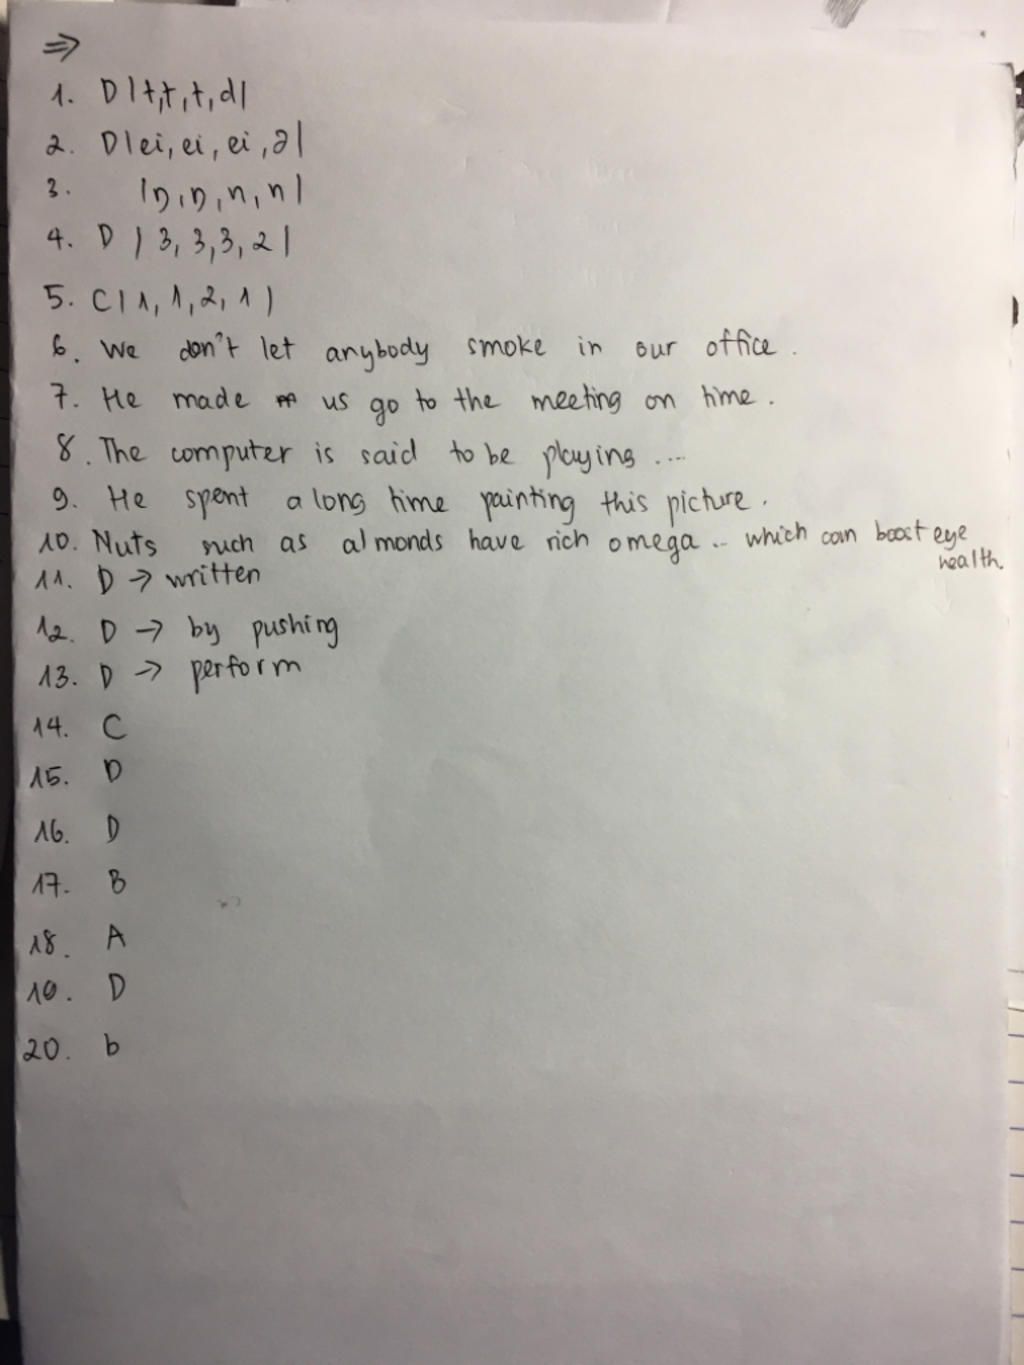 ⇒
1. D |t,t,t,d|
2. D|ei, ei, ei, ə|
3. |ŋ, ŋ, n, n|
4. D | 3, 3, 3, 2 |
5. C | 1, 1, 2, 1 |
6. We don't let anybody smoke in our office.
7. He made us go to the meeting on time.
8. The computer is said to be playing ....
9. He spent a long time painting this picture.
10. Nuts such as almonds have rich omega .. which can boost eye
health.
11. D → written
12. D → by pushing
13. D → perform
14. C
15. D
16. D
17. B
18. A
19. D
20. b